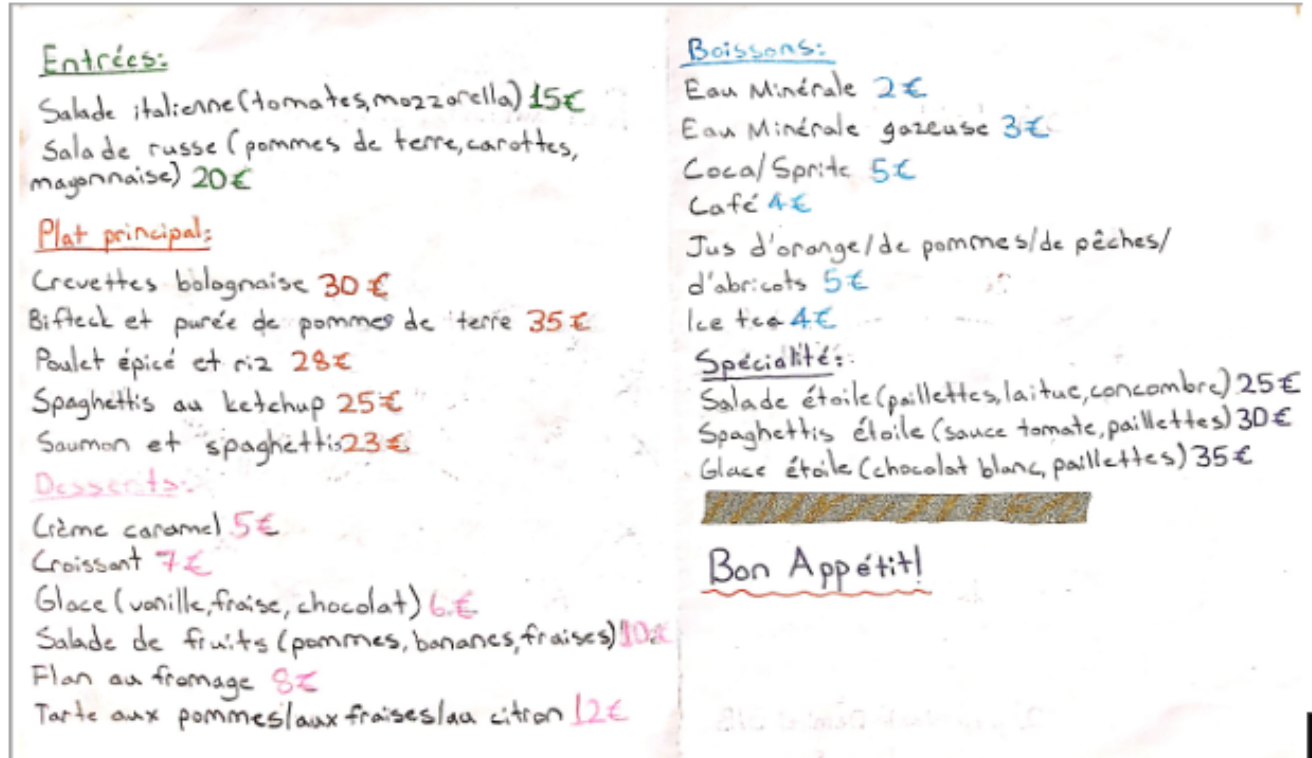 Entrées:
Salade italienne (tomates, mozzarella) 15€
Salade russe (pommes de terre, carottes,
mayonnaise) 20€
Plat principal:
Crevettes bolognaise 30€
Bifteck et purée de pommes de terre 35€
Poulet épicé et riz 28€
Spaghettis au ketchup 25€
Saumon et spaghettis 23€
Desserts:
Crème caramel 5€
Croissant 7€
Glace (vanille, fraise, chocolat) 6€
Salade de fruits (pommes, bananes, fraises) 10€
Flan au fromage 8€
Tarte aux pommes/aux fraises/au citron 12€
Boissons:
Eau Minérale 2€
Eau Minérale gazeuse 3€
Coca/Sprite 5€
Café 4€
Jus d'orange/de pommes/de pêches/
d'abricots 5€
Ice tea 4€
Spécialité:
Salade étoile (paillettes, laitue, concombre) 25€
Spaghettis étoile (sauce tomate, paillettes) 30€
Glace étoile (chocolat blanc, paillettes) 35€
Bon Appétit!